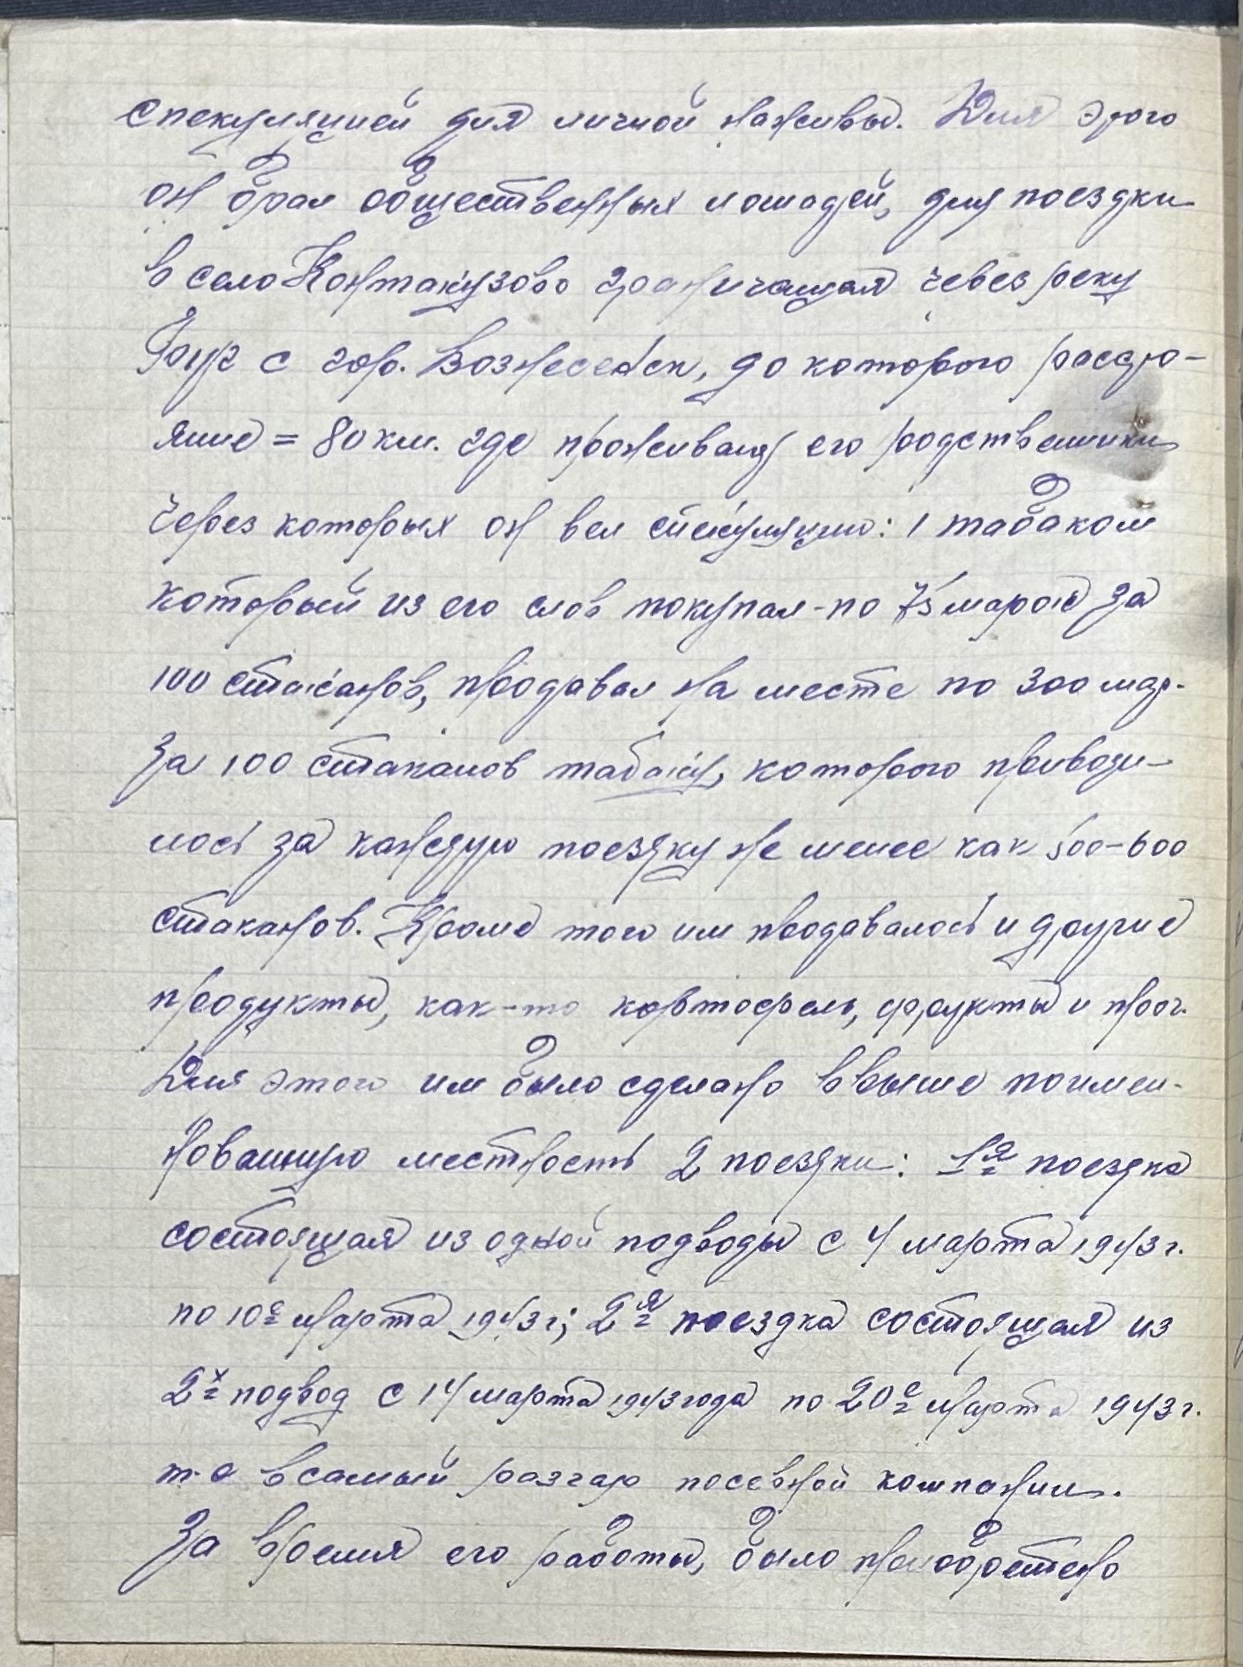 спекуляцией для личной наживы. Для этого
он брал общественных лошадей, для поездки
в село Контакузово граничащая через реку
Буг с гор. Вознесенск, до которого расдто-
яние = 80 км. где проживали его родственники
через которых он вел спекуляцию: 1 табаком
который из его слов покупал-по 75 марок за
100 стаканов, продавал на месте по 300 мар.
За 100 стаканов табаку, которого привози-
лось за каждую поездку не менее как 500-600
стаканов. Кроме того им продавалось и другие
продукты, как-то картофель, фрукты и проч.
Для этого им было сделано ввыше поимен-
нованную местность 2 поездки: 1я поездка
состоящая из одной подводы с 4 марта 1943 г.
по 10е марта 1943 г; 2я поездка состоящая из
2х подвод с 14 марта 1943 года по 20е марта 1943 г.
т-е в самый разгар посевной компании.
За время его работы, было приобретено